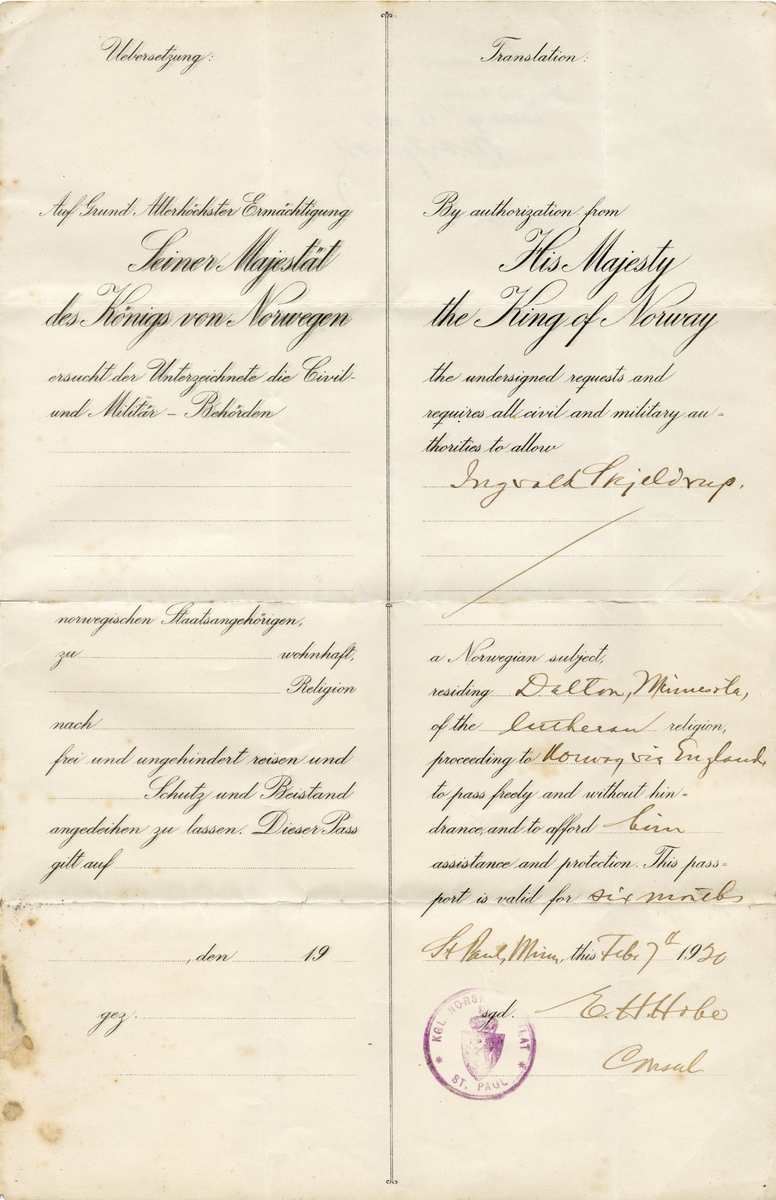 Uebersetzung:
Auf Grund Allerhöchster Ermächtigung
Seiner Majestät
des Königs von Norwegen
ersucht der Unterzeichnete die Civil-
und Militär - Behörden
norwegischen Staatsangehörigen,
zu wohnhaft,
Religion
nach
frei und ungehindert reisen und
Schutz und Beistand
angedeihen zu lassen. Dieser Pass
gilt auf
, den 19
gez.
Translation:
By authorization from
His Majesty
the King of Norway
the undersigned requests and
requires all civil and military au-
thorities to allow
Ingvald Skjeldrup.
a Norwegian subject,
residing Dalton, Minnesota,
of the lutheran religion,
proceeding to Norway via England,
to pass freely and without hin-
drance, and to afford him
assistance and protection. This pass-
port is valid for six months
St Paul, Minn, this Febr 7th 1920
sgd. E. H. Hobe
Consul
KGL. NORSK LAT
ST. PAUL